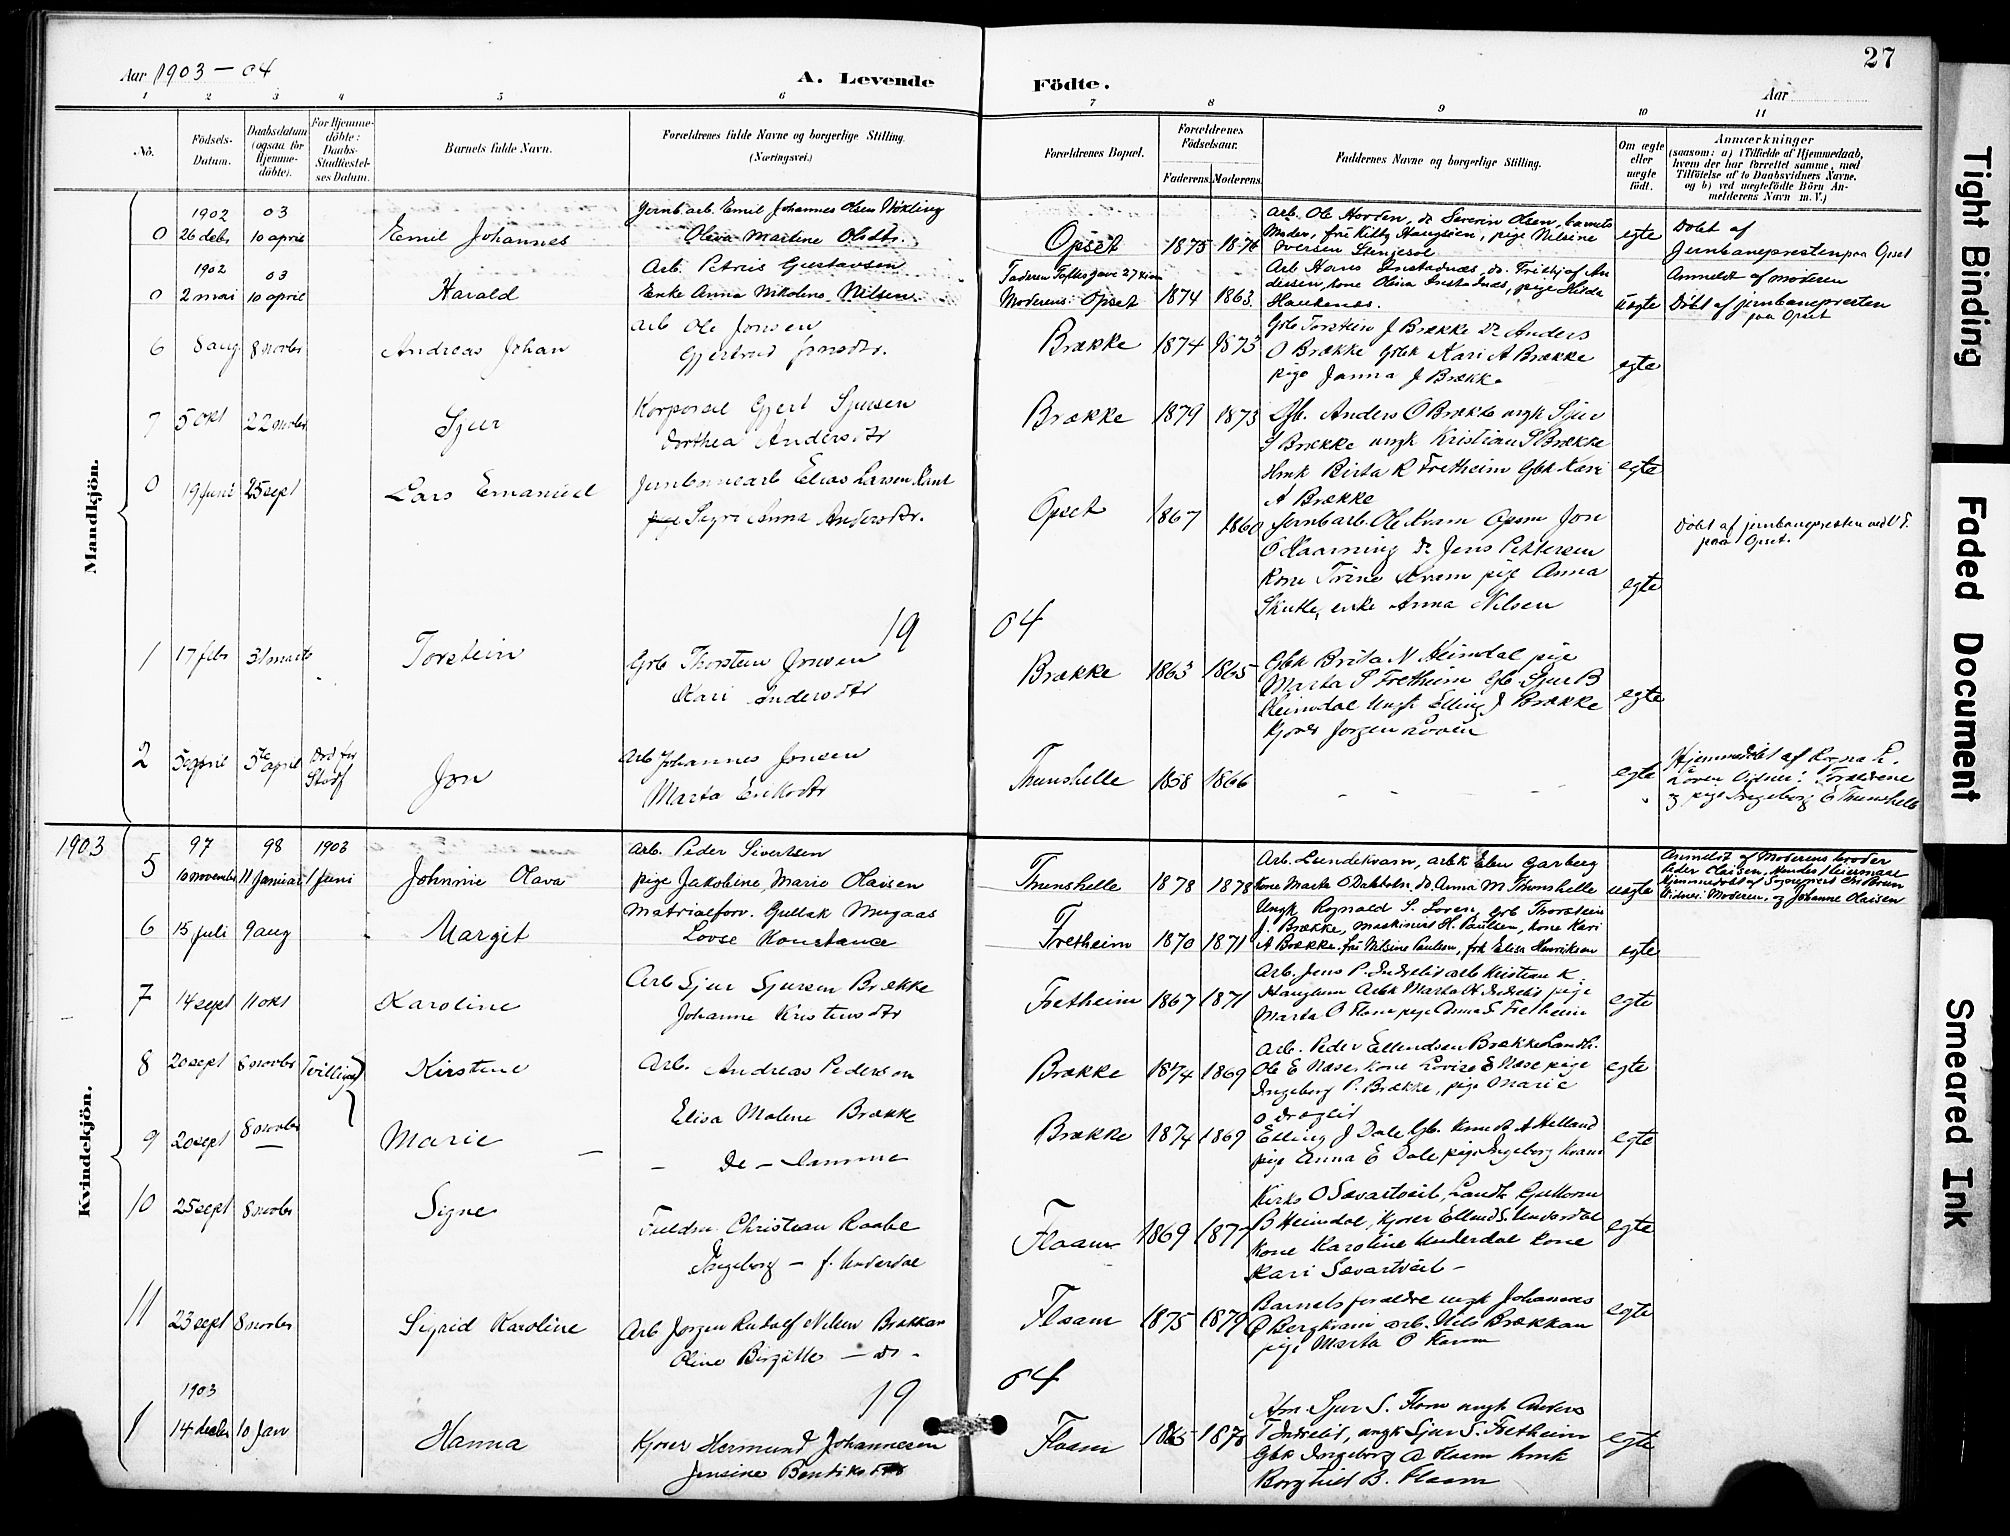 27
Aar 1903 - 04
A. Levende
Födte.
Aar
1 2 3 4 5 6 7 8 9 10 11
No.
Födsels-Datum.
Daabsdatum (ogsaa for Hjemme-döbte).
For Hjemme-döbte: Daabs-Stadfæstel-ses Datum.
Barnets fulde Navn.
Forældrenes fulde Navne og borgerlige Stilling.
(Næringsvei.)
Forældrenes Bopæl.
Forældrenes Födselsaar.
Faderens. Moderens.
Faddernes Navne og borgerlige Stilling.
Om ægte eller uægte födt.
Anmærkninger
(saasom: a) i Tilfælde af Hjemmedaab,
hvem der har forrettet samme, med
Tilföielse af to Daabsvidners Navne,
og b) ved uegtefödte Börn An-
melderens Navn m. V.)
Mandkjön.
1902 03
0 26 debr 10 april Emil Johannes
Jernb. arb. Emil Johannes Olsen
Oleva Martene Olsdtr.
Opset 1875 1876
Arb. Ole Hovden, do Severin Olsen, barnets
Moder, frü Kitty Haugsöen, pige Nilsine
egte
Döbt af
Jernbanepresten paa Opset
1902 03
0 2 mai 10 april Harald
Arb. Petrus Gustavsen
Enke Anna Nikoline Nilsen
Moderens: Opset 1874 1863
uægte
Anmeldt af moderen
Döbt af jernbanepresten
paa Opset
6 8 aug 8 novbr Andreas Johan
Arb Ole Jonsen
Gjertrud Jonsdtr.
Brække 1874 1873
Grb Torstein J Brække do Anders
O Brække Gbk Kari A Brække
pige Janna J Brække
egte
7 5 okt 22 novbr Sjur
Korporal Gjert Sjursen
Dorthea Andersdtr
Brække 1879 1873
Gb. Anders O Brække ungk Sjur
S Brække ungk Kristian S Brække
Hmk Birta R Fretheim Gbk Kari
A Brække
egte
0 19 juni 25 sept Lars Emanuel
Jernbanearb Elias Larsen
pige Sigri Anna Andersdtr.
Opset 1867 1860
Jernb arb. Ole Kvam Opsyn Jon
O Kaarning do Jens Pettersen
Kone Trine Kvam pige Anna
Skutle, enke Anna Nilsen
egte
Döbt af jernbanepresten ved V F.
paa Opset.
19 04
1 17 febr 31 marts Torstein
Grb Thorstein Jonsen
Kari Andersdtr
Brække 1863 1865
Gbk Brita N Heimdal pige
Marta S Fretheim Gb. Sjur B
Heimdal Ungk Elling J Brække
Kjorer Jorgen Loven
egte
2 5 april 5te april Jon
Arb Johannes Jonsen
Marta Eriksdtr
Thunshelle 1858 1866
- - - -
egte
Hjemmedöbt af Ragna L.
Löven Vidner: Forældrene
og pige Ingeborg E Thunshelle
Kvindekjön.
1903
97 98 1903
5 10 novembr 11 januar 1 juni Johnnie Olava
Arb. Peder Sivertsen
pige Jakobine Marie Olaisen
Thunshelle 1878 1878
Arb. Lundekvam, arbk Elen Garberg
Kone Marta O Dahlsbn. do. Anna M Thunshelle
uægte
Anmeldt af Moderens broder
Peder Olaisen,
Vidner: Moderen, og Johanne Olaisen
6 15 juli 9 aug Margit
Matrialforv. Gullak Mugaas
Lovse Konstance
Fretheim 1870 1871
Ungk Rognald S. Loven, Grb Thorstein
J. Brække, maskinist H. Paulsen, kone Kari
A Brække. frü Nilsine Paulsen, frk Elisa Henriksen
egte
7 14 sept 11 okt Karoline
Arb Sjur Sjursen Brække
Johanne Kristensdtr
Fretheim 1867 1871
Arb. Jens P. Indrelid arb Kristian K.
Haugtun Arbk Marta H Indrelid pige
Marta O Flaam pige Anna S Fretheim
egte
8 20 sept 8 novbr Tvilling Kirstine
Arb. Andreas Pedersen
Elisa Malene Brække
Brække 1874 1869
Arb. Peder Ellendsen Brække Landh.
Ole E Næse Kone Lovise E Næse pige
Ingeborg P. Brække, pige Marie
O Dræglid
egte
9 20 sept 8 novbr Marie -
- De - samme
Brække 1874 1869
Elling J Dale Gb. Knud A Helland
pige Anna E Dale, pige Ingeborg Kvam
egte
10 25 sept 8 novbr Signe
Fuldm. Christian Raabe
Ingeborg - f. Underdal
Flaam 1869 1877
Kirks O Sævartveit, Landh Guttorm
B Heimdal, Kjorer Ellend S. Underdal
Kone Karoline Underdal Kone
Kari Sævartveit -
egte
11 23 sept 8 novbr Sigrid Karoline
Arb Jorgen Rudolf Nilsen Brækkan
Oline Birgitte - do -
Flaam 1875 1879
Barnets foræeldre ungk Johannes
O Bergkvam arb. Nils Brækkan
pige Marta O Kvam
egte
19 04
1903
1 14 decbr 10 Jan Hanna
Kjorer Hermund Johannesen
Jensine Bendiksdtr
Flaam 1865 1878
Hm Sjur S. Flam ungk Anders
T Indrelid, ungk Sjur S. Fretheim
Gbk Ingeborg A Flaam hmk
Borghild B. Flaam
egte
Tight Binding
Faded Document
Smeared Ink